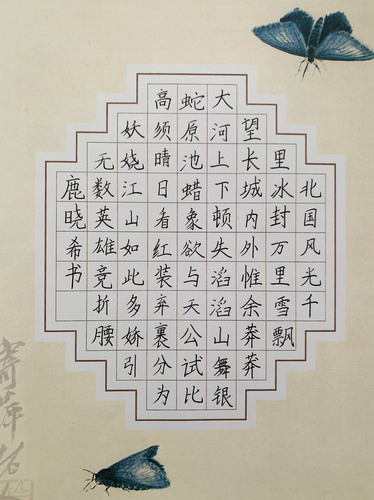 北国风光千
里冰封万里雪飘
望长城内外惟余莽莽
大河上下顿失滔滔山舞银
蛇原池蜡象欲与天公试比
高须晴日看红装弃裹分为
妖娆江山如此多娇引
无数英雄竞折腰
鹿晓希书